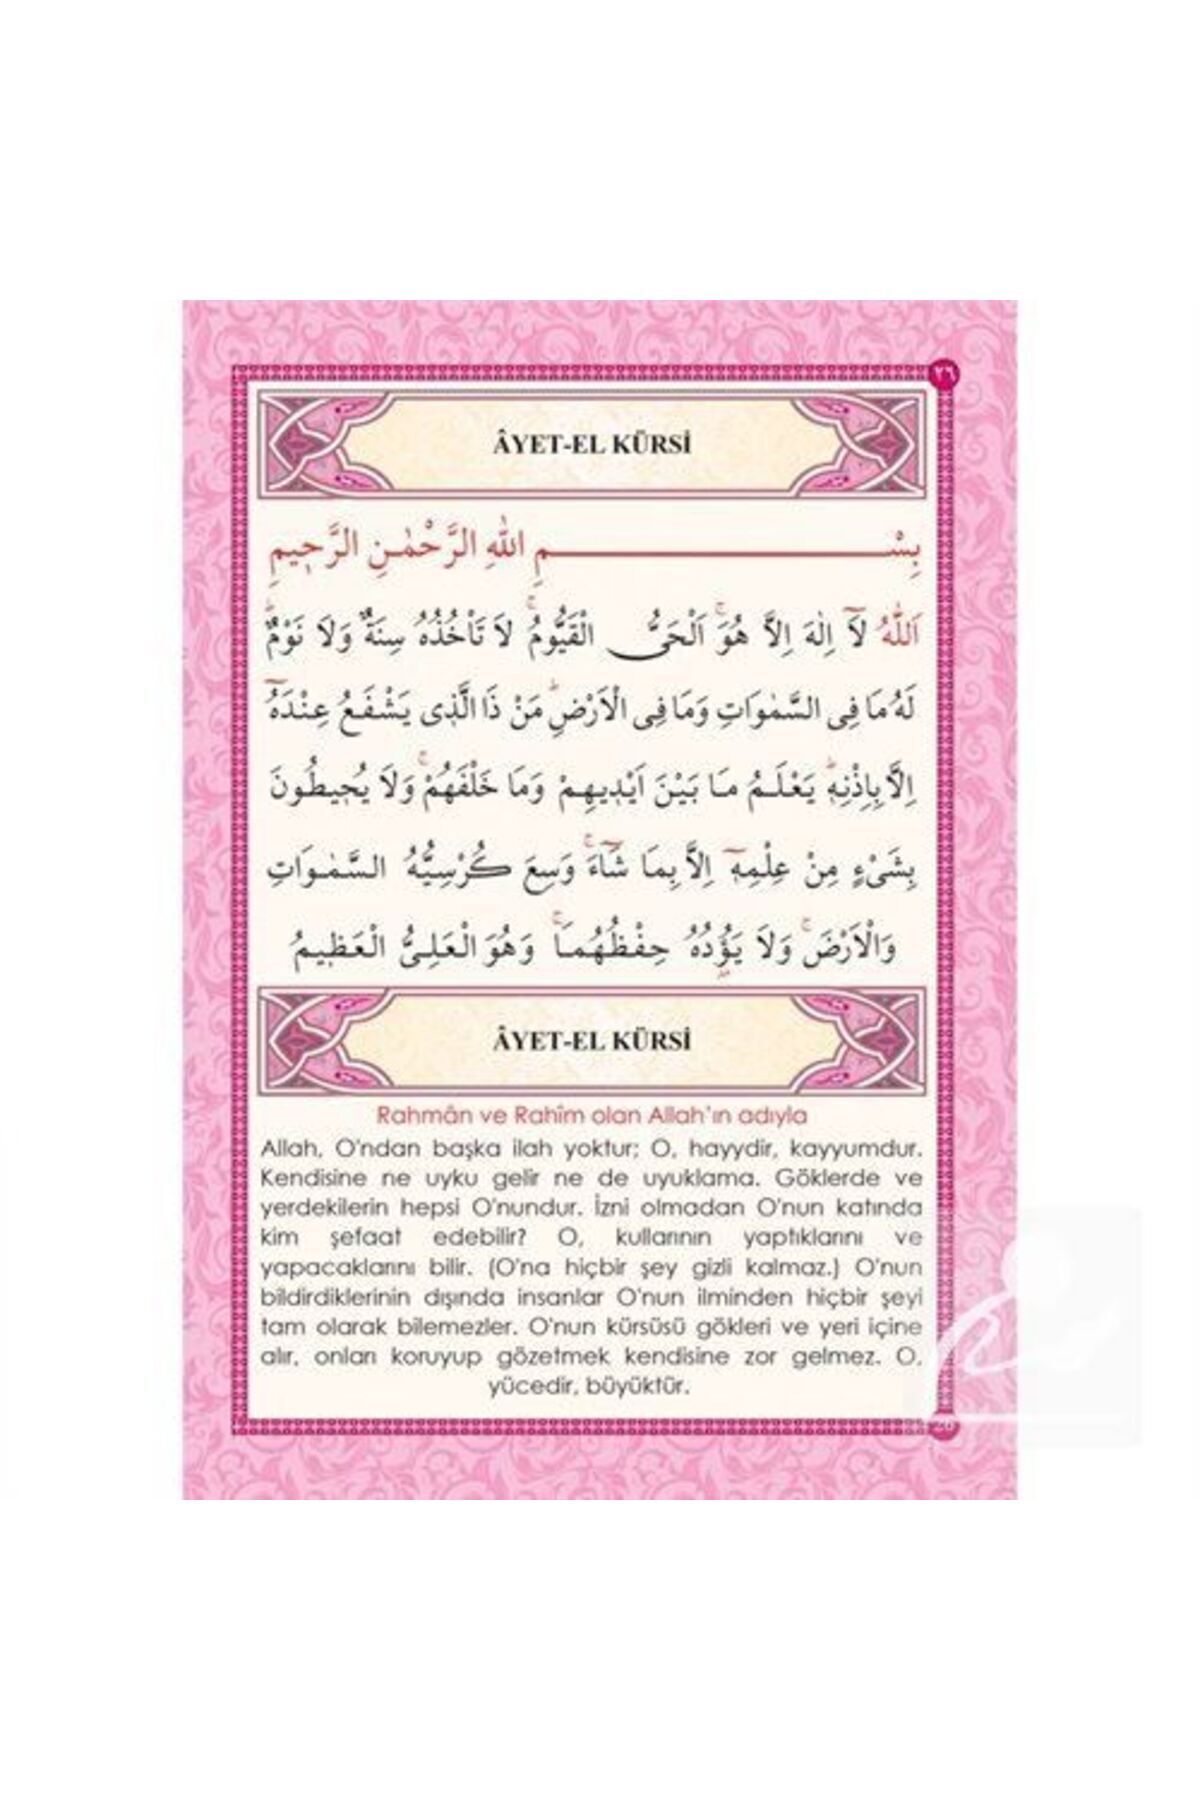 ٢٦
ÂYET-EL KÜRSİ
بِسْمِ اللهِ الرَّحْمٰنِ الرَّحٖيمِ
اَللّٰهُ لَآ اِلٰهَ اِلَّا هُوَۚ اَلْحَىُّ الْقَيُّومُۚ لَا تَأْخُذُهُ سِنَةٌ وَلَا نَوْمٌؕ
لَهُ مَا فِى السَّمٰوَاتِ وَمَا فِى الْاَرْضِؕ مَنْ ذَا الَّذٖى يَشْفَعُ عِنْدَهُٓ
اِلَّا بِاِذْنِهٖؕ يَعْلَمُ مَا بَيْنَ اَيْدٖيهِمْ وَمَا خَلْفَهُمْۚ وَلَا يُحٖيطُونَ
بِشَىْءٍ مِنْ عِلْمِهٖٓ اِلَّا بِمَا شَٓاءَۚ وَسِعَ كُرْسِيُّهُ السَّمٰوَاتِ
وَالْاَرْضَۚ وَلَا يَؤُدُهُ حِفْظُهُمَاۚ وَهُوَ الْعَلِىُّ الْعَظٖيمُ
ÂYET-EL KÜRSİ
Rahmân ve Rahîm olan Allah'ın adıyla
Allah, O'ndan başka ilah yoktur; O, hayydir, kayyumdur.
Kendisine ne uyku gelir ne de uyuklama. Göklerde ve
yerdekilerin hepsi O'nundur. İzni olmadan O'nun katında
kim şefaat edebilir? O, kullarının yaptıklarını ve
yapacaklarını bilir. (O'na hiçbir şey gizli kalmaz.) O'nun
bildirdiklerinin dışında insanlar O'nun ilminden hiçbir şeyi
tam olarak bilemezler. O'nun kürsüsü gökleri ve yeri içine
alır, onları koruyup gözetmek kendisine zor gelmez. O,
yücedir, büyüktür.